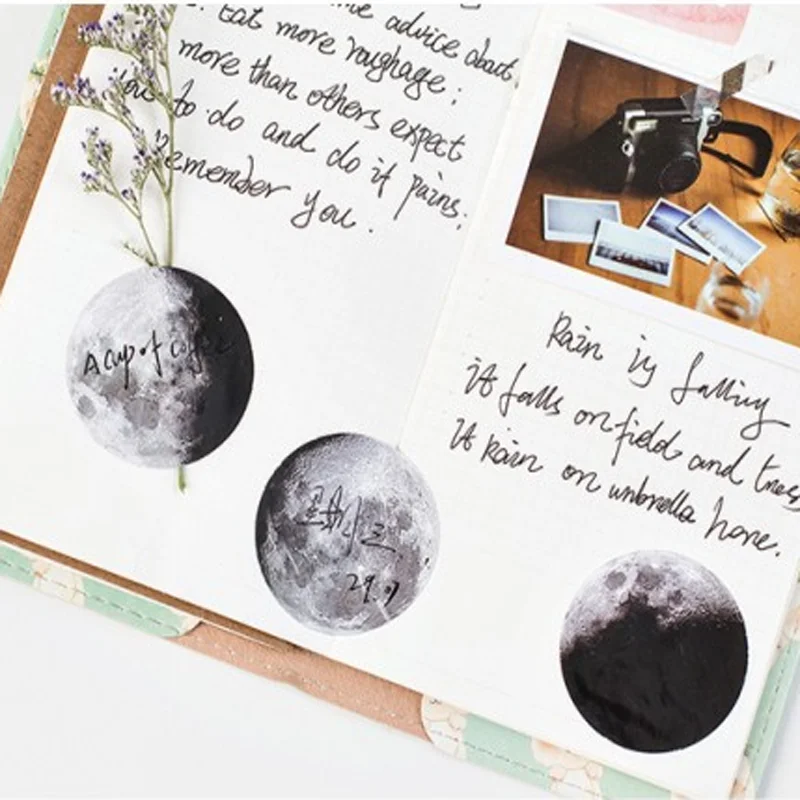 Eat more advice about
more roughage;
more than others expect
You to do and do it pains;
Remember you.
A cup of coffee
星期三
29.07
Rain is falling
it falls on field and trees
It Rain on unbrella hore.